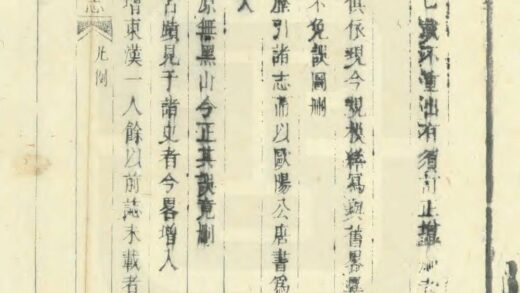 重出有須訂正
俱依現今親校寫與舊畧
不免誤圖刪
歷引諸志而以歐陽公唐書爲
人
原無黑山今正其誤竟刪
古蹟見于諸史者今畧增入
增東漢一人餘以前誌未載者
志 凡例